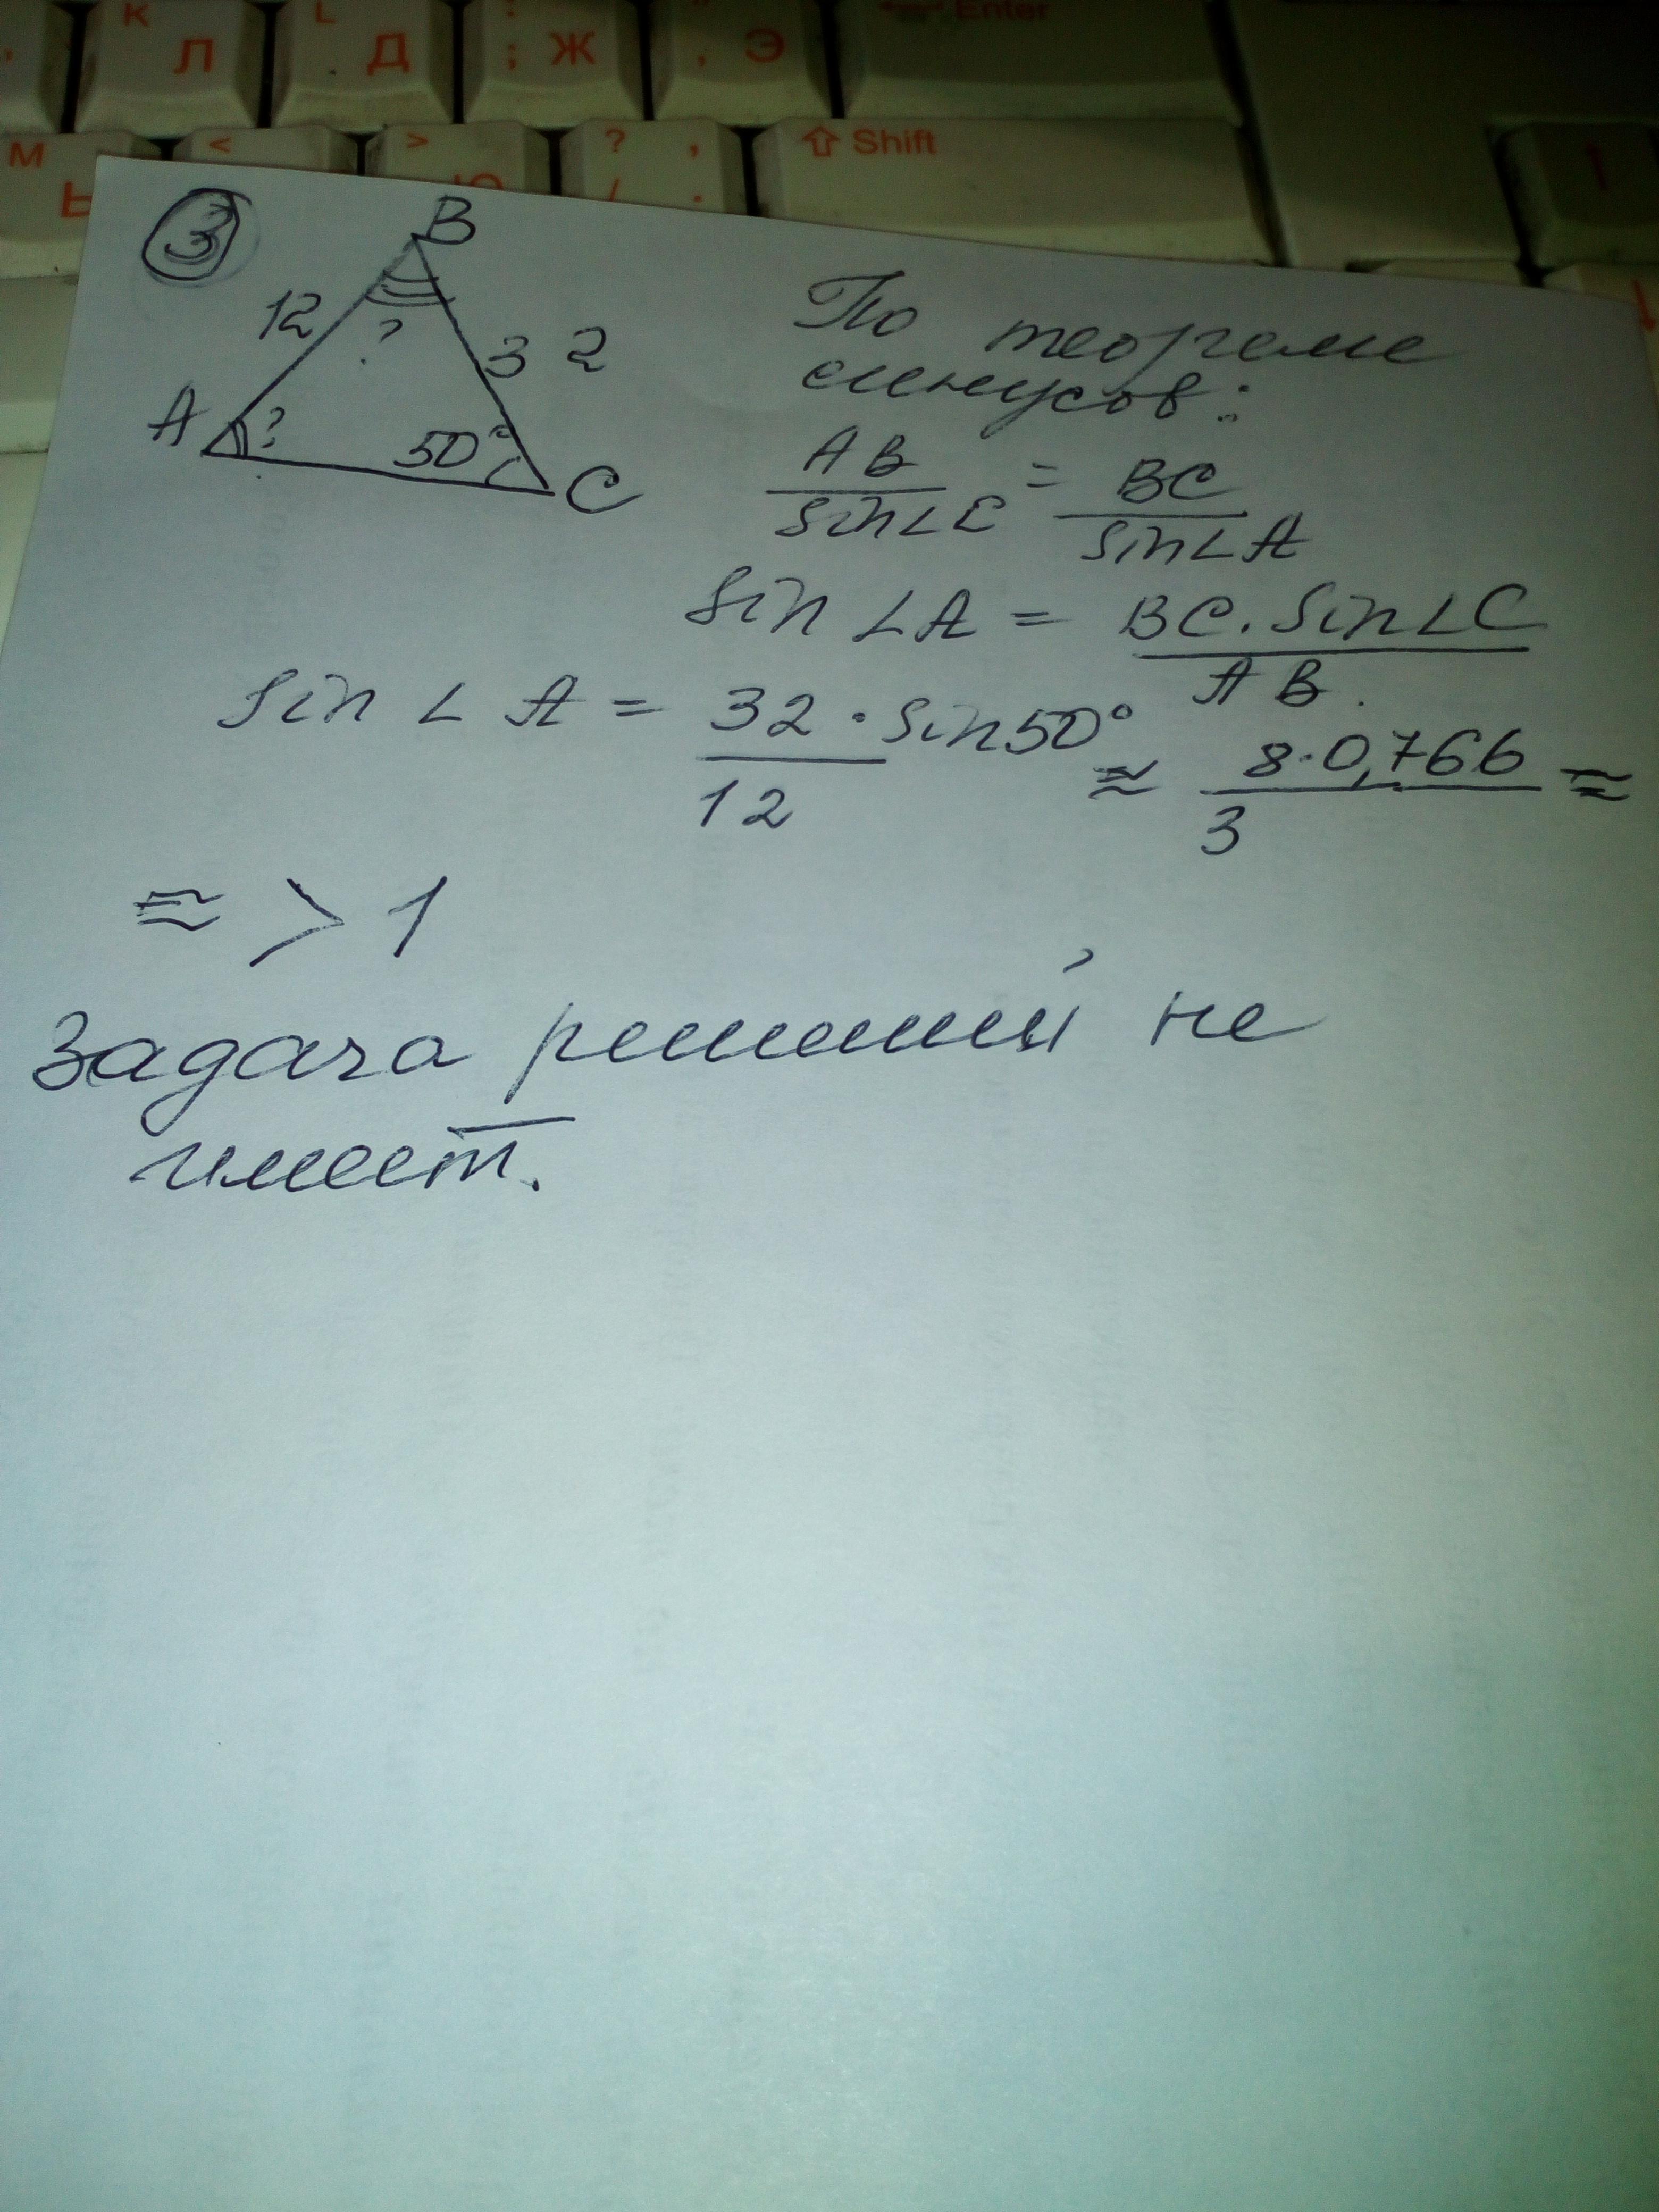 К Л
L Д
: ; Ж
" , Э
Enter
М Ь
<
> Ю
? , / .
Shift
3
B
12
?
3 2
A
?
50°
C
По теореме
синусов:
AB = BC
sin∠C sin∠A
sin ∠A = BC · sin∠C
AB
sin ∠ A = 32 · sin50° ≈ 8·0,766 ≈
12 3
≈ > 1
Задача решений не
имеет.